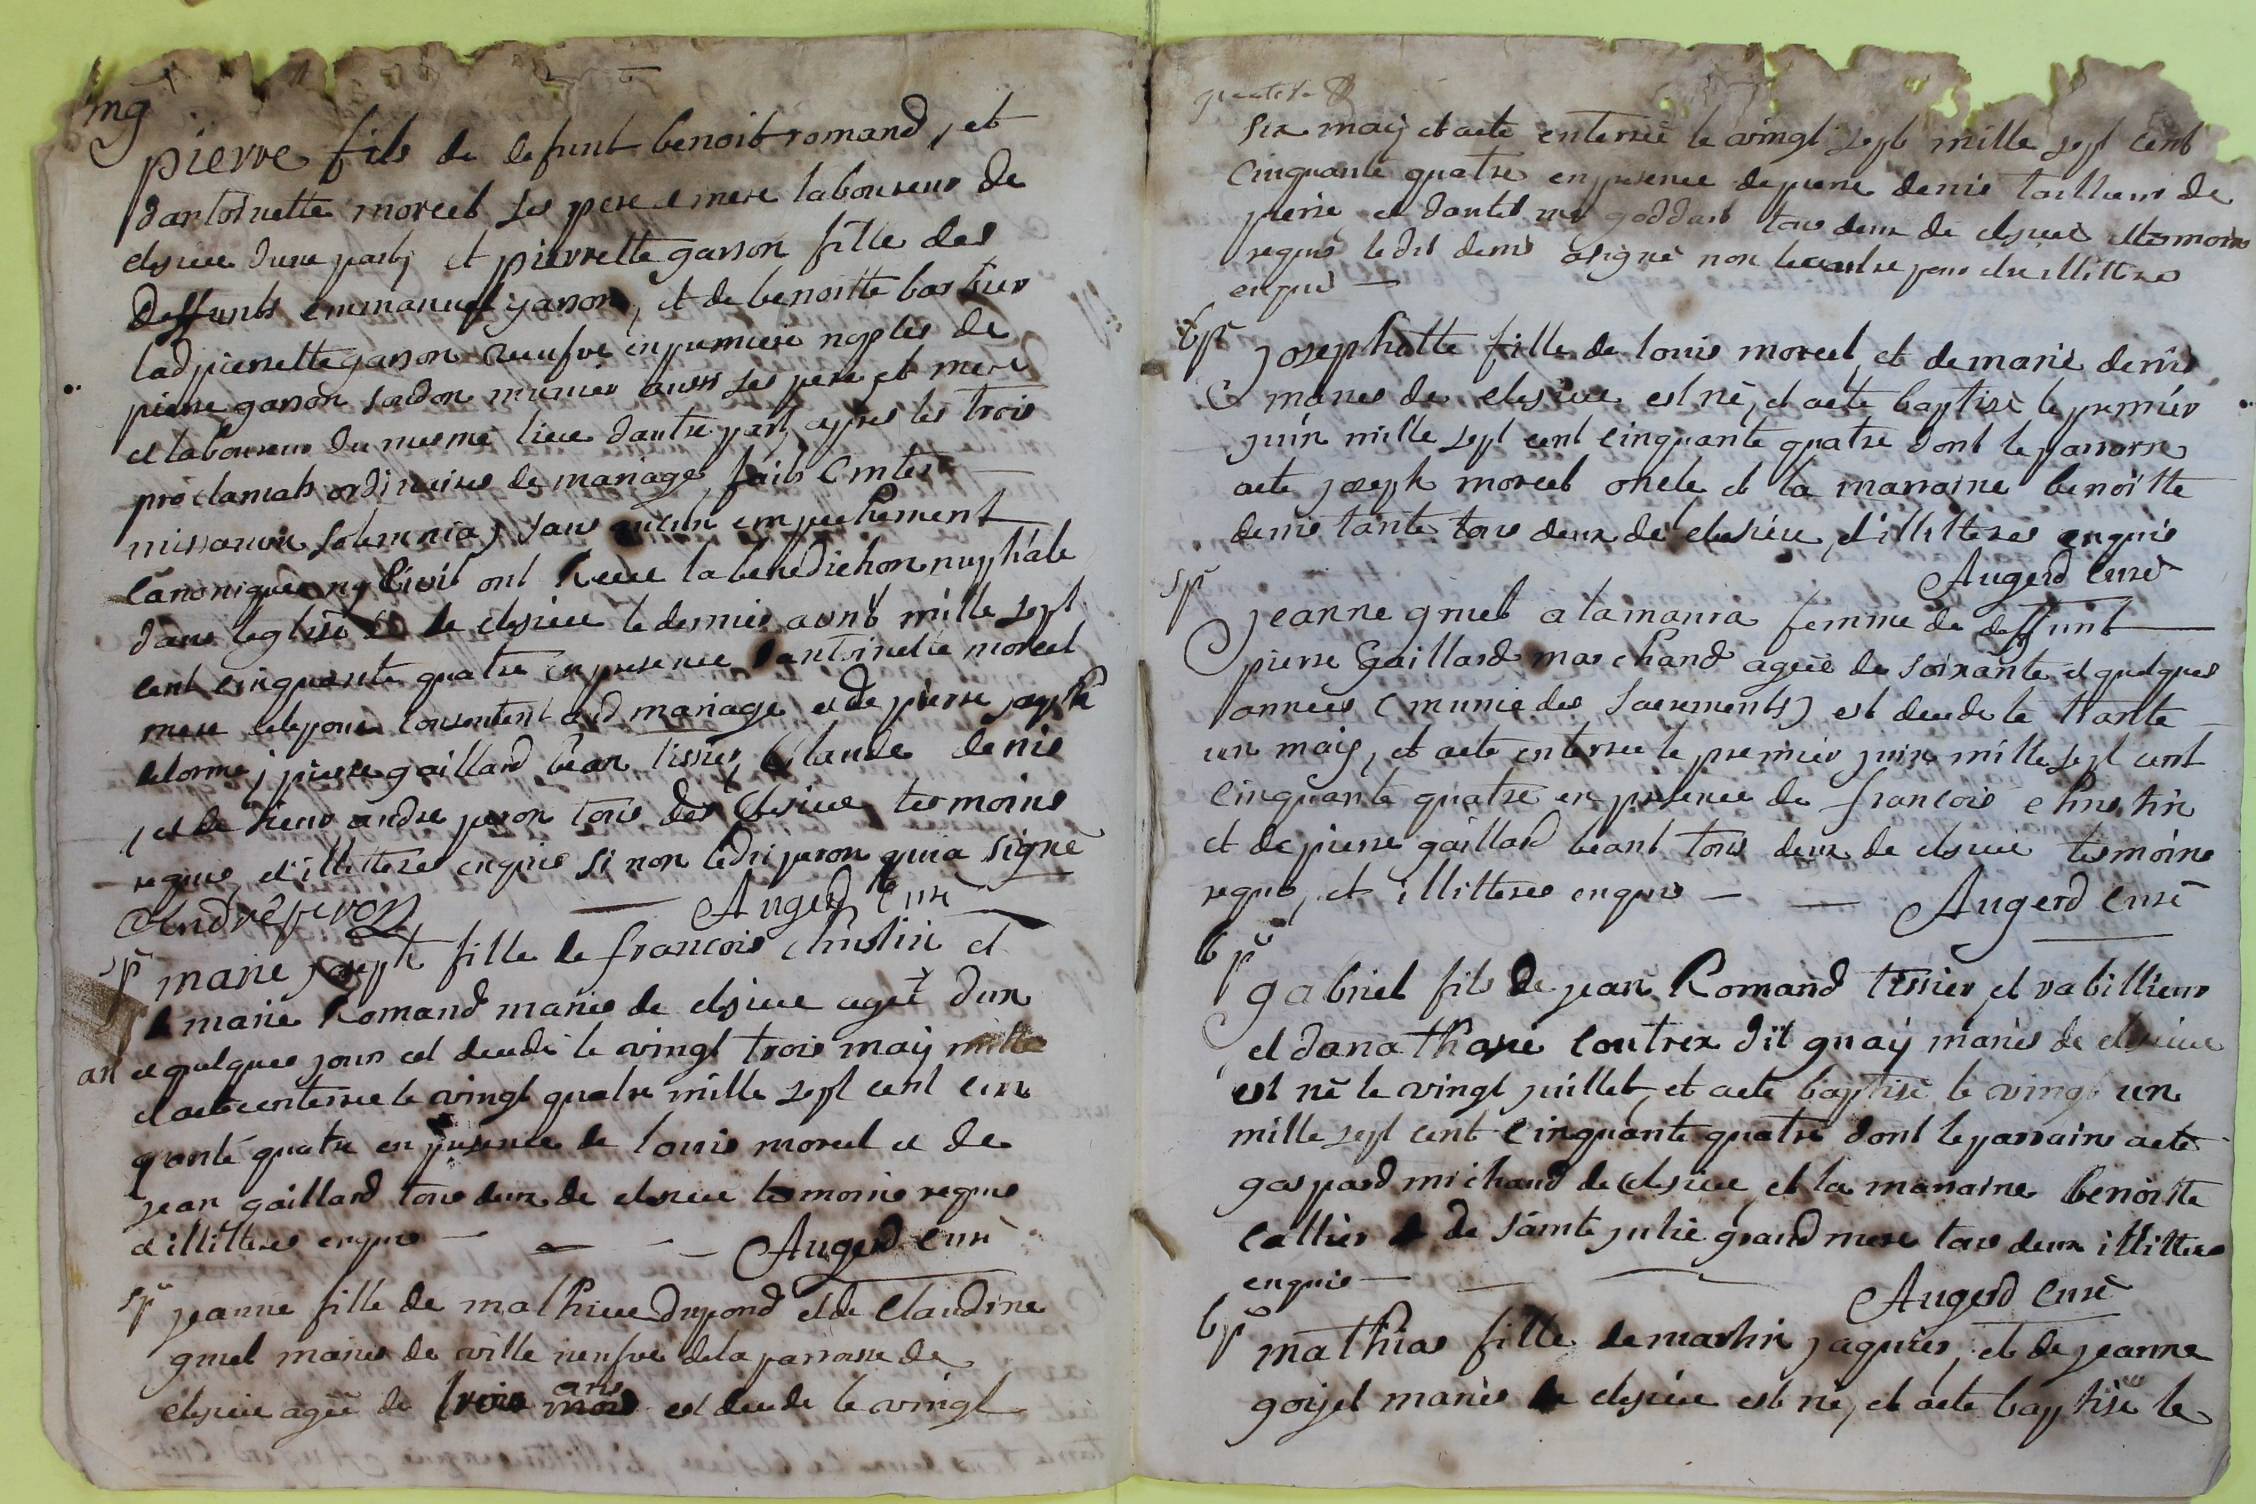 mg
pierre fils de defunt benoit romand, et
dantoinette morcel ses pere e mere laboureur de
clesieu dune part, et pierrette garson fille des
deffunts emmanuel garson, et de benoitte barbier
lad pierrette garson veufve en premiere nopces de
pierre garson munier aussi ses pere et mere
et laboureur du mesme lieu dautre part, appres les trois
proclamats ordinaires de mariage faits inter
missarum solemnia, sans aucun empechement
canonique ny civil ont receu la benediction nuptiale
dans leglise de clesieu le dernier avril mille sept
cent cinquante quatre en presence dantoinette morcel
mere delepoux consentent aud mariage et de pierre joseph
delorme, pierre gaillard bean tissier, Claude denis
, et de sieur andre peron tous de Clesieu tesmoins
requis, et illitteres enquis si non ledit peron qui a signe
Andre peron
Augerd Curé
spr marie joseph fille de francois Christin et
marie Romand mariés de clesieu ageé dun
an et quelques jours est decedé le vingt trois may mille
et aeté enterreé le vingt quatre mille sept cent cin
quante quatre en presence de louis morcel et de
jean gaillard tous deux de clesieu tesmoins requis
et illitteres enquis
Augerd Curé
spr jeanne fille de mathieu dupond et de Claudine
gruel mariés de ville neufve dela parroisse de
ans
clesieu ageé de trois mois est decede le vingt
six may et aeté enterreé le vingt sept mille sept cent
cinquante quatre en presence de pierre denis tailleur de
pierre et goddard tous deux de clesieu tesmoins
requis ledit denis asigné non lautre pour etre illittere
enquis
bpr josephatte fille de louis morcel, et de marie denis
mariés de clesieu est né, et aeté baptisé le premier
juin mille sept cent cinquante quatre dont le parrain
aeté joseph morcel oncle et la marraine benoitte
denis tante tous deux de clesieu, et illitteres enquis
Augerd Curé
spr jeanne gruel femme de deffunt
pierre Gaillard marchand ageé de soixante et quelques
années (munie des sacrements) est decede le trante
un may, et aeté enterreé le premier juin mille sept cent
cinquante quatre en presence de francois Christin
et de pierre gaillard tous deux de clesieu tesmoins
requis, et illitteres enquis
Augerd Curé
bpr gabriel fils de jean Romand tissier et rabillieur
et danathasie Coutrix dit guay mariés de clesieu
est né le vingt juillet, et aeté baptisé le vingt un
mille sept cent cinquante quatre dont le parrain aeté
gaspard michaud de Clesieu, et la marraine benoitte
Callier de sainte julie grand mere tous deux illitteres
enquis
Augerd Curé
bpr mathias fille de martin jaquier, et de jeanne
goijet mariés de clesieu est né, et aeté baptisé le